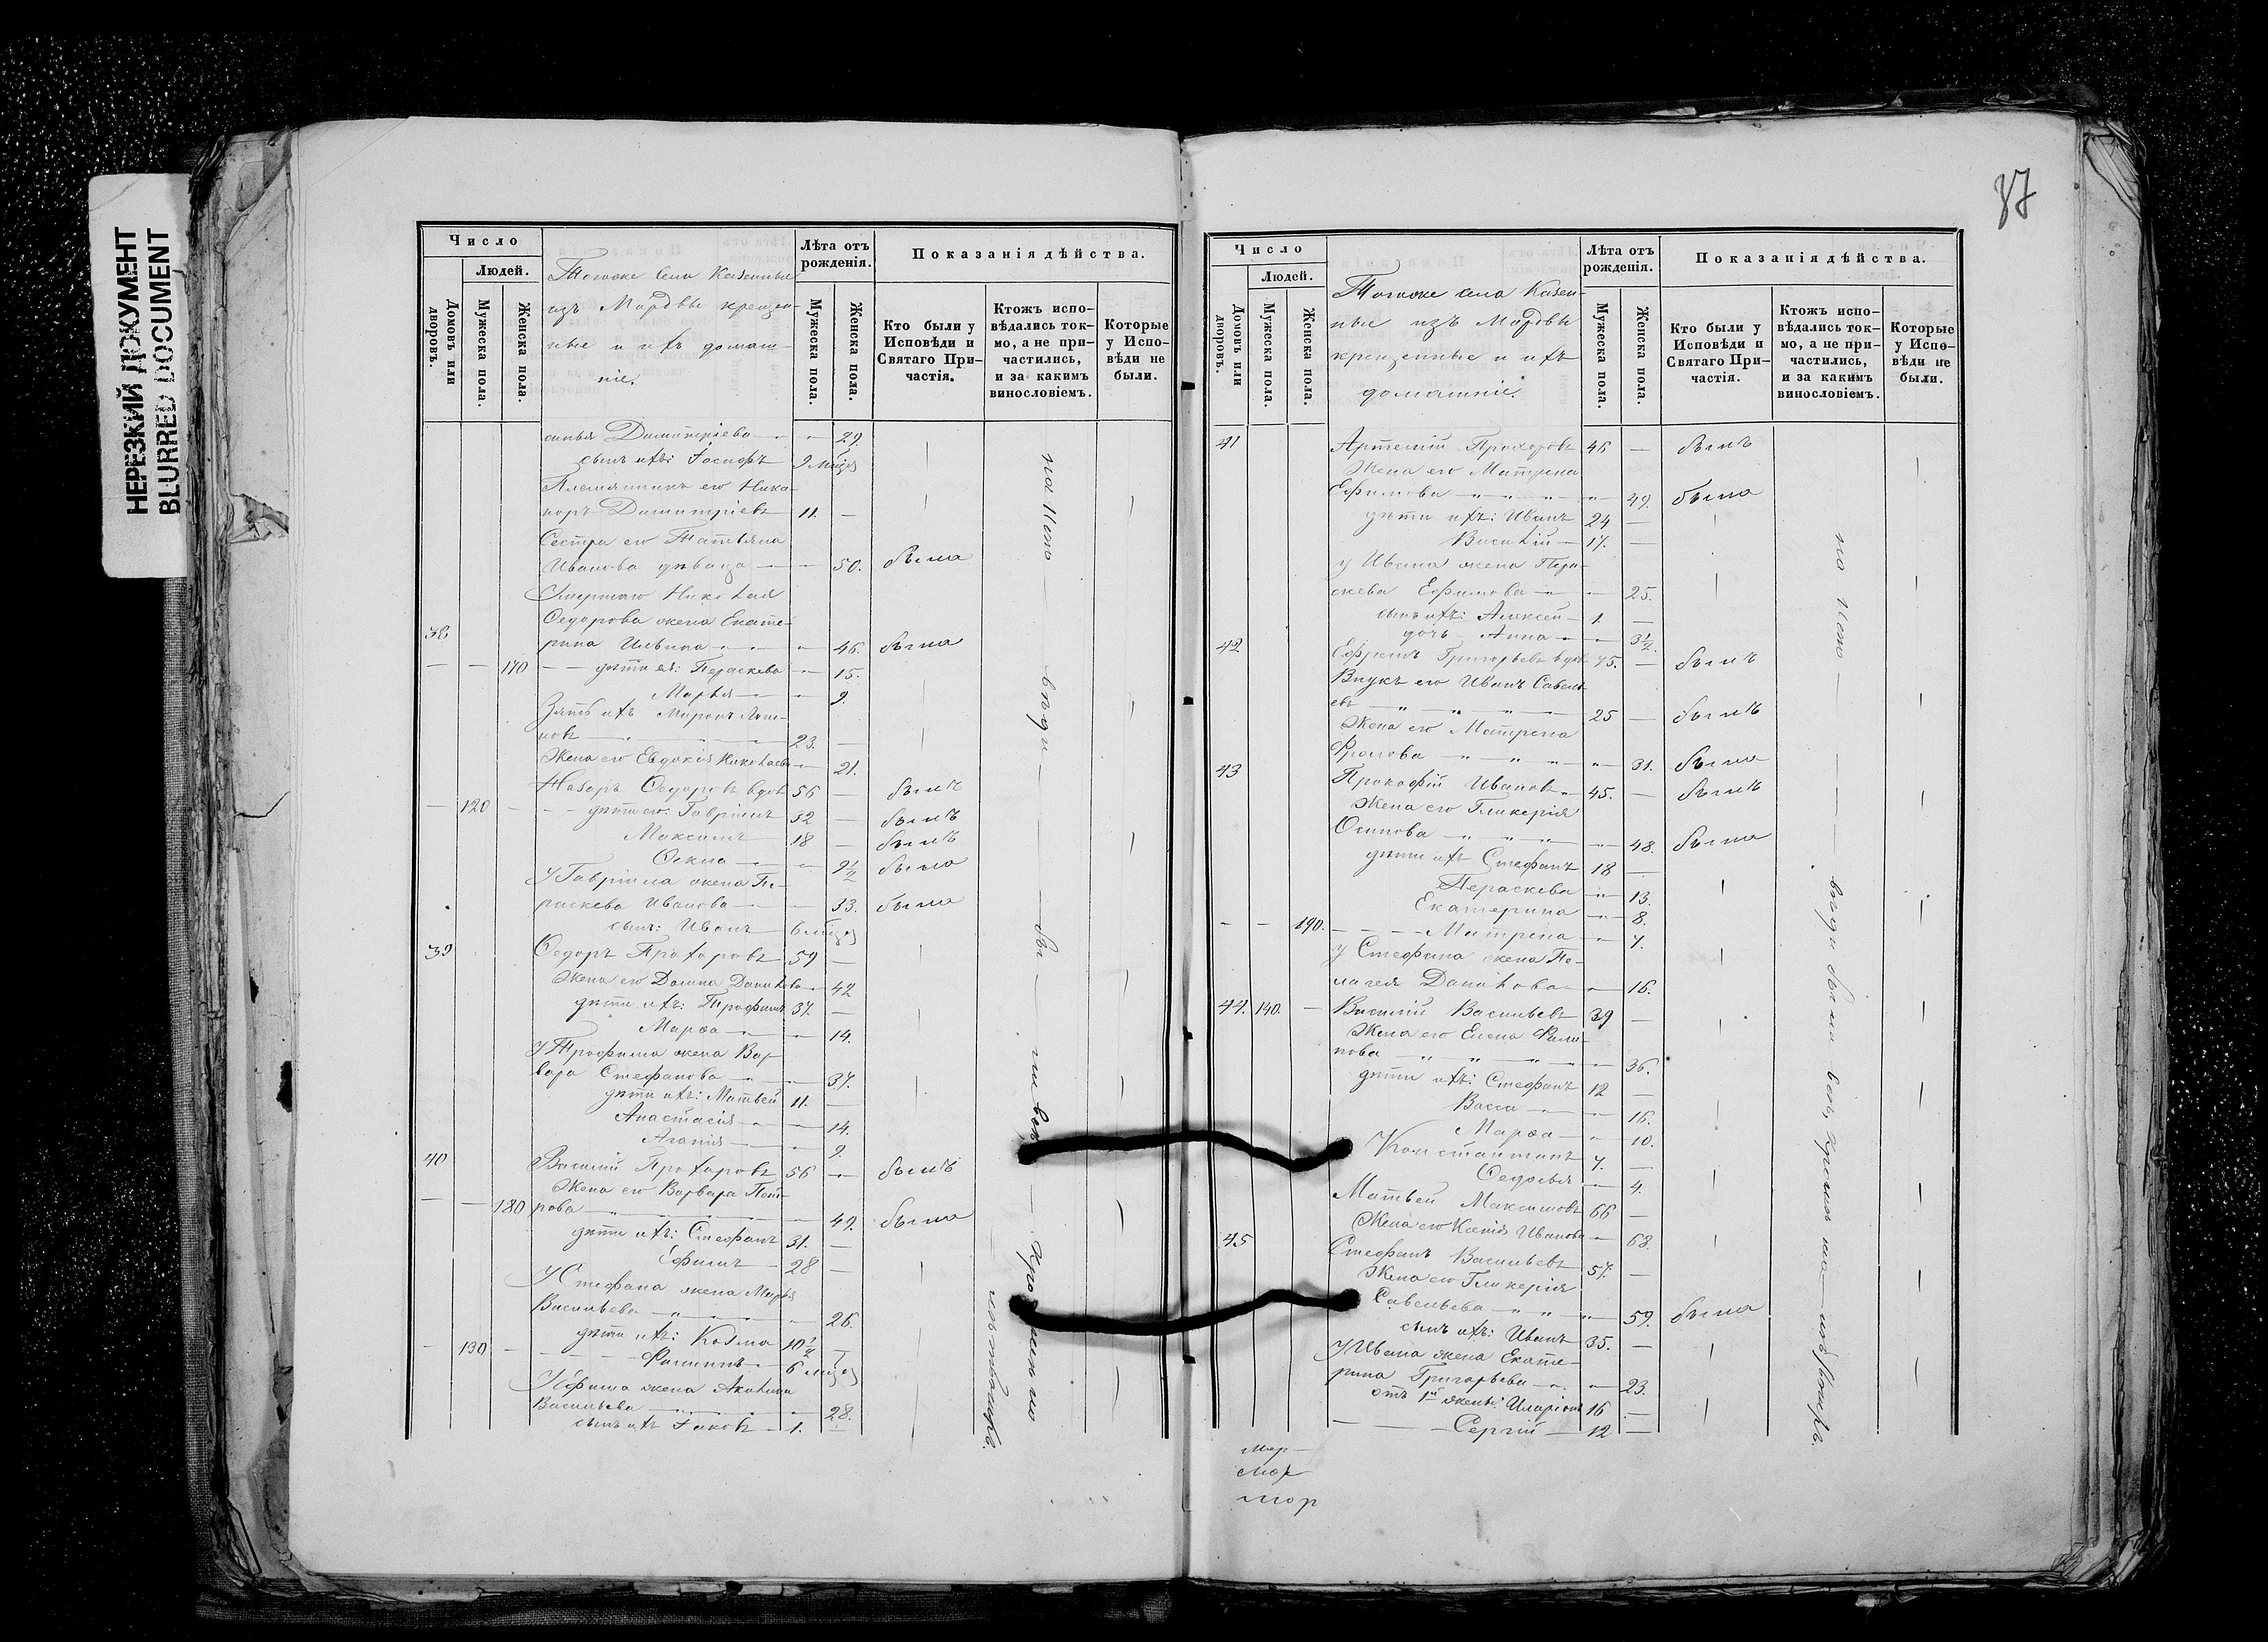 НЕРЕЗКИЙ ДОКУМЕНТ
BLURRED DOCUMENT
Число
Людей.
Домовъ или дворовъ.
Мужеска пола.
Женска пола.
Тогоже села Казенные
изъ Мордвы крещен-
ные и ихъ домаш-
ніе.
Лѣта отъ рожденія.
Мужеска пола.
Женска пола.
Показанія дѣйства.
Кто были у Исповѣди и Святаго При-частія.
Ктожъ испо-вѣдались ток-мо, а не при-частились, и за какимъ винословіемъ.
Которые у Испо-вѣди не были.
Димитріева — — 29.
сынъ ихъ: Іосифъ 9 мѣцъ
Племянникъ его Ника-
норъ Димитріевъ 11. —
Сестра его Татьяна
Иванова дѣвица — — 50. была
Умершаго Николая
Ѳедорова жена Екате-
38 рина Ильина — — 46. была
— — 170 — — дѣти ея: Параскева — 15.
Марья — — 9.
Зять ихъ Миронъ
новъ — 23. —
Жена его Евдокія Николаева — 21.
Назаръ Ѳедоровъ вдов 56 — былъ
— 120 — — дѣти его: Гавріилъ 32 — былъ
Максимъ 18 — былъ
Ѳекла — — 9 1/2 была
У Гавріила жена Па-
раскева Иванова — — 33. была
сынъ: Иванъ 6 мѣцъ
39 Ѳедоръ Прохоровъ 59 —
Жена его Домна Данилова — 42
дѣти ихъ: Трофимъ 37. —
Марѳа — — 14.
У Трофима жена Вар-
вара Стефанова — — 37.
дѣти ихъ: Матвей 11. —
Анастасія — — 14.
Агапія — — 9.
40 Василій Прохоровъ 56 — былъ
Жена его Варвара Пет-
— — 180 рова — — 49. была
дѣти ихъ: Стефанъ 31. —
Ефимъ — 28 —
У Стефана жена Марья
Васильева — — 26.
дѣти ихъ: Козма 10 1/2 —
— 130 — — Филиппъ — 6 мѣцъ
У Ефима жена Акилина
Васильева — — 28.
сынъ ихъ Іаковъ — 1. —
87
Число
Людей.
Домовъ или дворовъ.
Мужеска пола.
Женска пола.
Тогоже села Казен-
ные изъ Мордвы
крещенные и ихъ
домашніе.
Лѣта отъ рожденія.
Мужеска пола.
Женска пола.
Показанія дѣйства.
Кто были у Исповѣди и Святаго При-частія.
Ктожъ испо-вѣдались ток-мо, а не при-частились, и за какимъ винословіемъ.
Которые у Испо-вѣди не были.
41 Артемій Прохоровъ 46 — былъ
Жена его Матрена
Ефимова — — 49. была
дѣти ихъ: Иванъ 24 —
Василій — 17. —
У Ивана жена Пара-
скева Ефимова — — 25.
сынъ ихъ: Алексей — 1. —
дочь — Анна — — 3 1/2.
42 Ефремъ Григорьевъ вдов 75. — былъ
Внукъ его Иванъ Савель-
евъ — 25 — былъ
Жена его Матрена
Фролова — — 31. была
43 Прокофій Ивановъ — 45. — былъ
Жена его Гликерія
Осипова — — 48. была
дѣти ихъ Стефанъ 18 —
Параскева — 13.
Екатерина — 8.
— — 190. — — Матрена — 7.
У Стефана жена Пе-
лагея Данилова — — 16.
44. 140. — Василій Васильевъ 39 —
Жена его Елена Фили-
пова — — 36.
дѣти ихъ: Стефанъ 12 —
Васса — — 16.
Марѳа — — 10.
Константинъ 7. —
Ѳедосья — 4.
Матвей Максимовъ 66 —
Жена его Ксенія Иванова — 68.
45 Стефанъ Васильевъ 57. —
Жена его Гликерія
Савельева — — 59. была
сынъ ихъ: Иванъ 35. —
У Ивана жена Екате-
рина Григорьева — — 23.
отъ 1й жены: Иларіонъ 16 —
— — Сергій — 12 —
мор